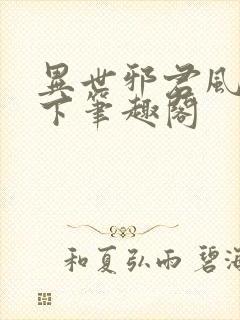 異世邪君風
下筆趣閣
和夏弘雨碧海